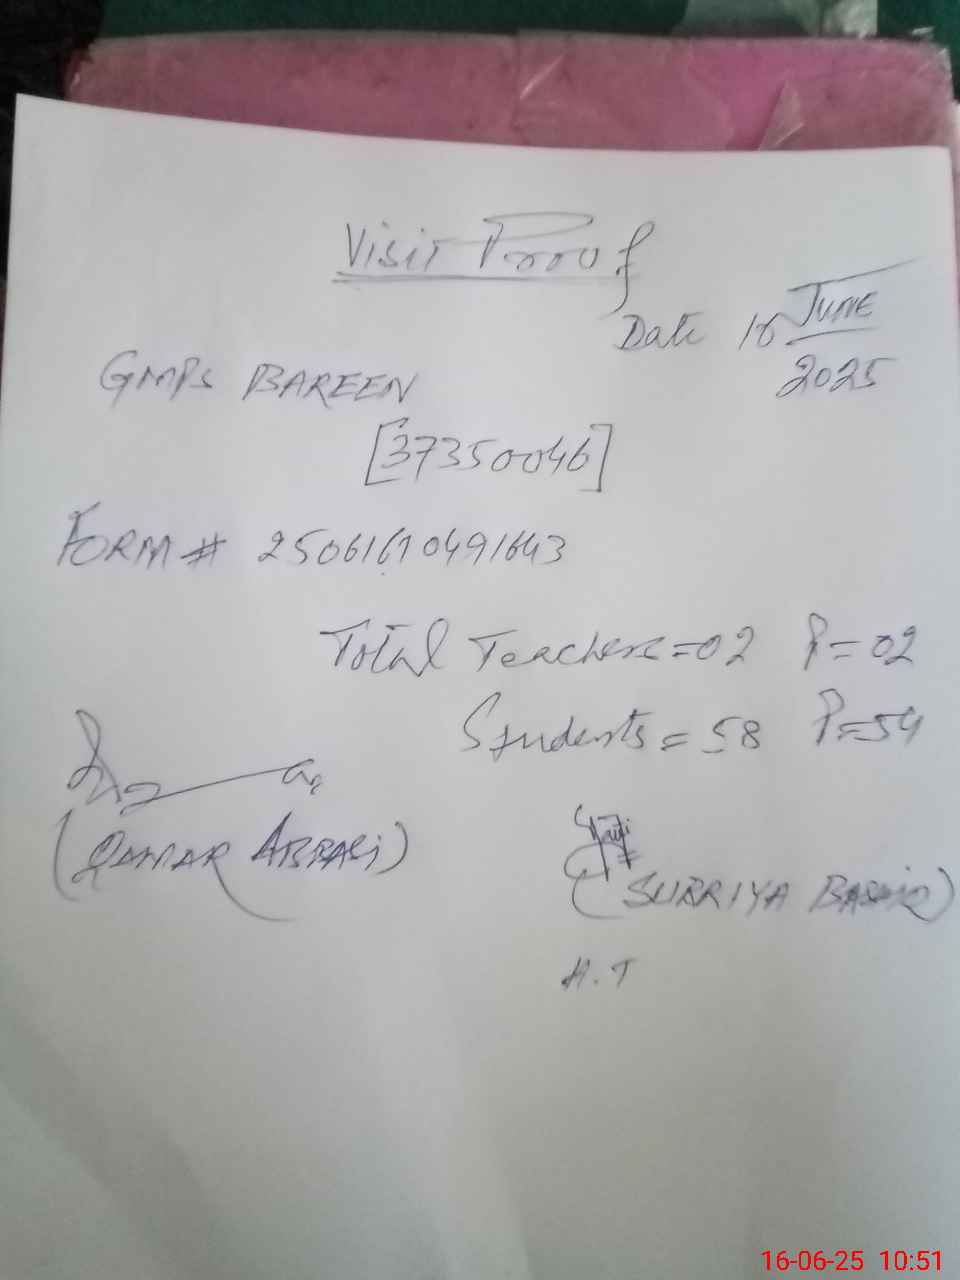 Visit Proof
Date 16 JUNE
2025
GMPS BAREEN
[37350046]
FORM # 25061610491643
Total Teachers = 02 P = 02
Students = 58 P = 54
(QAMAR ABBASi)
(SURRIYA BASHIR)
H.T
16-06-25 10:51